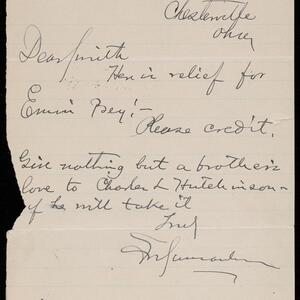 Chesterville
Ohio
Dear Smith
Here is relief for
Please credit.
Give nothing but a brother's
love to Charles L Hutchinson -
if he will take it